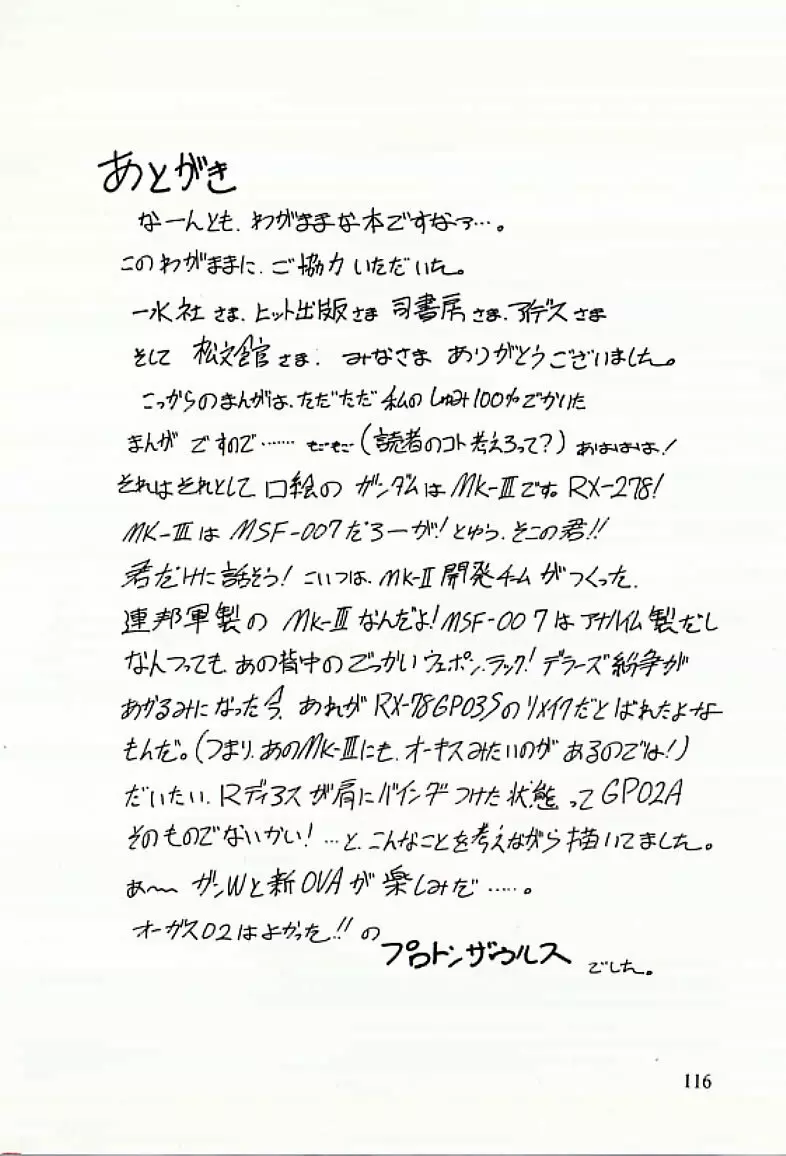 あとがき
なーんとも、わがままな本ですなァ…。
このわがままに、ご協力いただいた。
一水社さま、ヒット出版さま 司書房さま、アイデスさま
そして 松文館さま、みなさま ありがとうございました。
こっからのまんがは、ただただ 私の しゅみ100%でかいた
まんが ですので…… もごもご (読者のコト考えろって?) あははは!
それはそれとして 口絵の ガンダムは Mk-Ⅲです。RX-278!
MK-Ⅲは MSF-007だろーが!とゆう、そこの君!!
君だけに話そう! こいつは、Mk-Ⅱ 開発チームがつくった、
連邦軍製の Mk-Ⅲなんだよ! MSF-007は アナハイム製だし
なんつっても、あの背中のごっかいウェポン、ラック! デラーズ紛争が
あかるみになった今、あれが RX-78GP03Sの リメイクだとばれたよーな
もんだ。(つまり、あのMk-Ⅲにも、オーキスみたいのが あるのでは!)
だいたい、Rディアスが肩にバインダつけた状態って GP02A
そのものでないかい! …と、こんなことを考えながら描いてました。
あ〜〜 ガンWと新OVAが 楽しみだ……。
オーガス02はよかった!! の
プロトンザウルス でした。
116